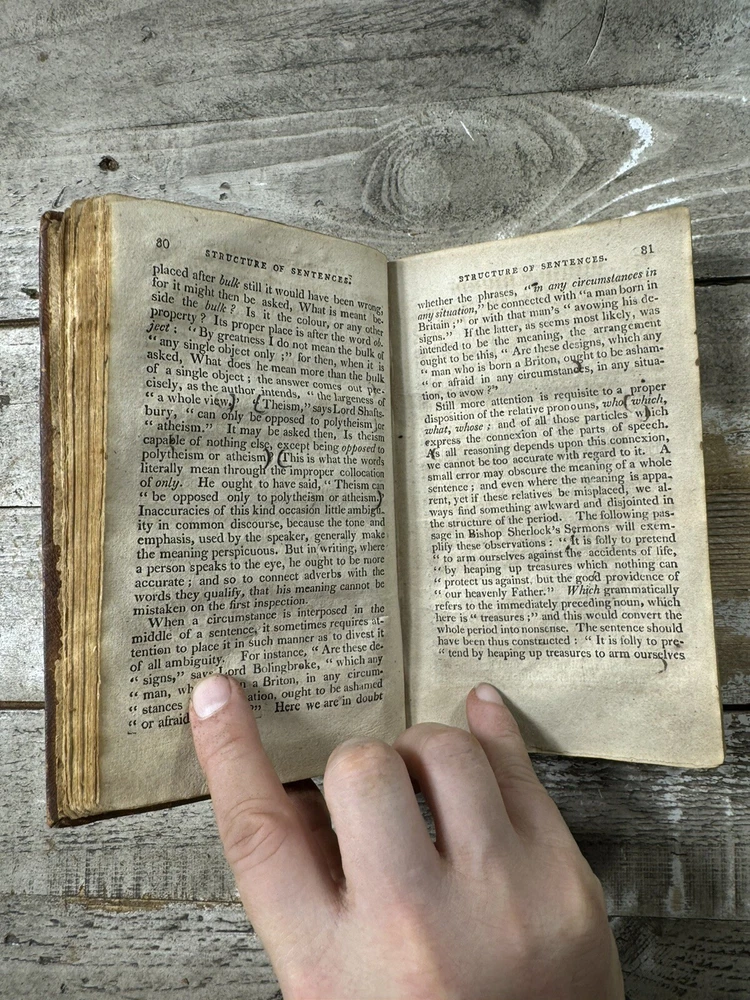 80
STRUCTURE OF SENTENCES.
placed after bulk still it would have been wrong,
for it might then be asked, What is meant be-
side the bulk? Is it the colour, or any other
property? Its proper place is after the word ob-
ject: "By greatness I do not mean the bulk of
"any single object only;" for then, when it is
asked, What does he mean more than the bulk
of a single object; the answer comes out pre-
cisely, as the author intends, "the largeness of
"a whole view." "Theism," says Lord Shafts-
bury, "can only be opposed to polytheism or
"atheism." It may be asked then, Is theism
capable of nothing else, except being opposed to
polytheism or atheism) (This is what the words
literally mean through the improper collocation
of only. He ought to have said, "Theism can
"be opposed only to polytheism or atheism.)
Inaccuracies of this kind occasion little ambigu-
ity in common discourse, because the tone and
emphasis, used by the speaker, generally make
the meaning perspicuous. But in writing, where
a person speaks to the eye, he ought to be more
accurate; and so to connect adverbs with the
words they qualify, that his meaning cannot be
mistaken on the first inspection.
When a circumstance is interposed in the
middle of a sentence, it sometimes requires at-
tention to place it in such manner as to divest it
of all ambiguity. For instance, "Are these de-
"signs," says Lord Bolingbroke, "which any
"man, a Briton, in any circum-
"stances ought to be ashamed
"or afraid Here we are in doubt
81
STRUCTURE OF SENTENCES.
whether the phrases, "in any circumstances in
any situation," be connected with "a man born in
Britain;" or with that man's "avowing his de-
signs." If the latter, as seems most likely, was
intended to be the meaning, the arrangement
ought to be this, "Are these designs, which any
"man who is born a Briton, ought to be asham-
"or afraid in any circumstances, in any situa-
tion, to avow?"
Still more attention is requisite to a proper
disposition of the relative pronouns, who, which,
what, whose; and of all those particles which
express the connexion of the parts of speech.
As all reasoning depends upon this connexion,
we cannot be too accurate with regard to it. A
small error may obscure the meaning of a whole
sentence; and even where the meaning is appa-
rent, yet if these relatives be misplaced, we al-
ways find something awkward and disjointed in
the structure of the period. The following pas-
sage in Bishop Sherlock's Sermons will exem-
plify these observations: "It is folly to pretend
"to arm ourselves against the accidents of life,
"by heaping up treasures which nothing can
"protect us against, but the good providence of
"our heavenly Father." Which grammatically
refers to the immediately preceding noun, which
here is "treasures;" and this would convert the
whole period into nonsense. The sentence should
have been thus constructed: "It is folly to pre-
"tend by heaping up treasures to arm ourselves